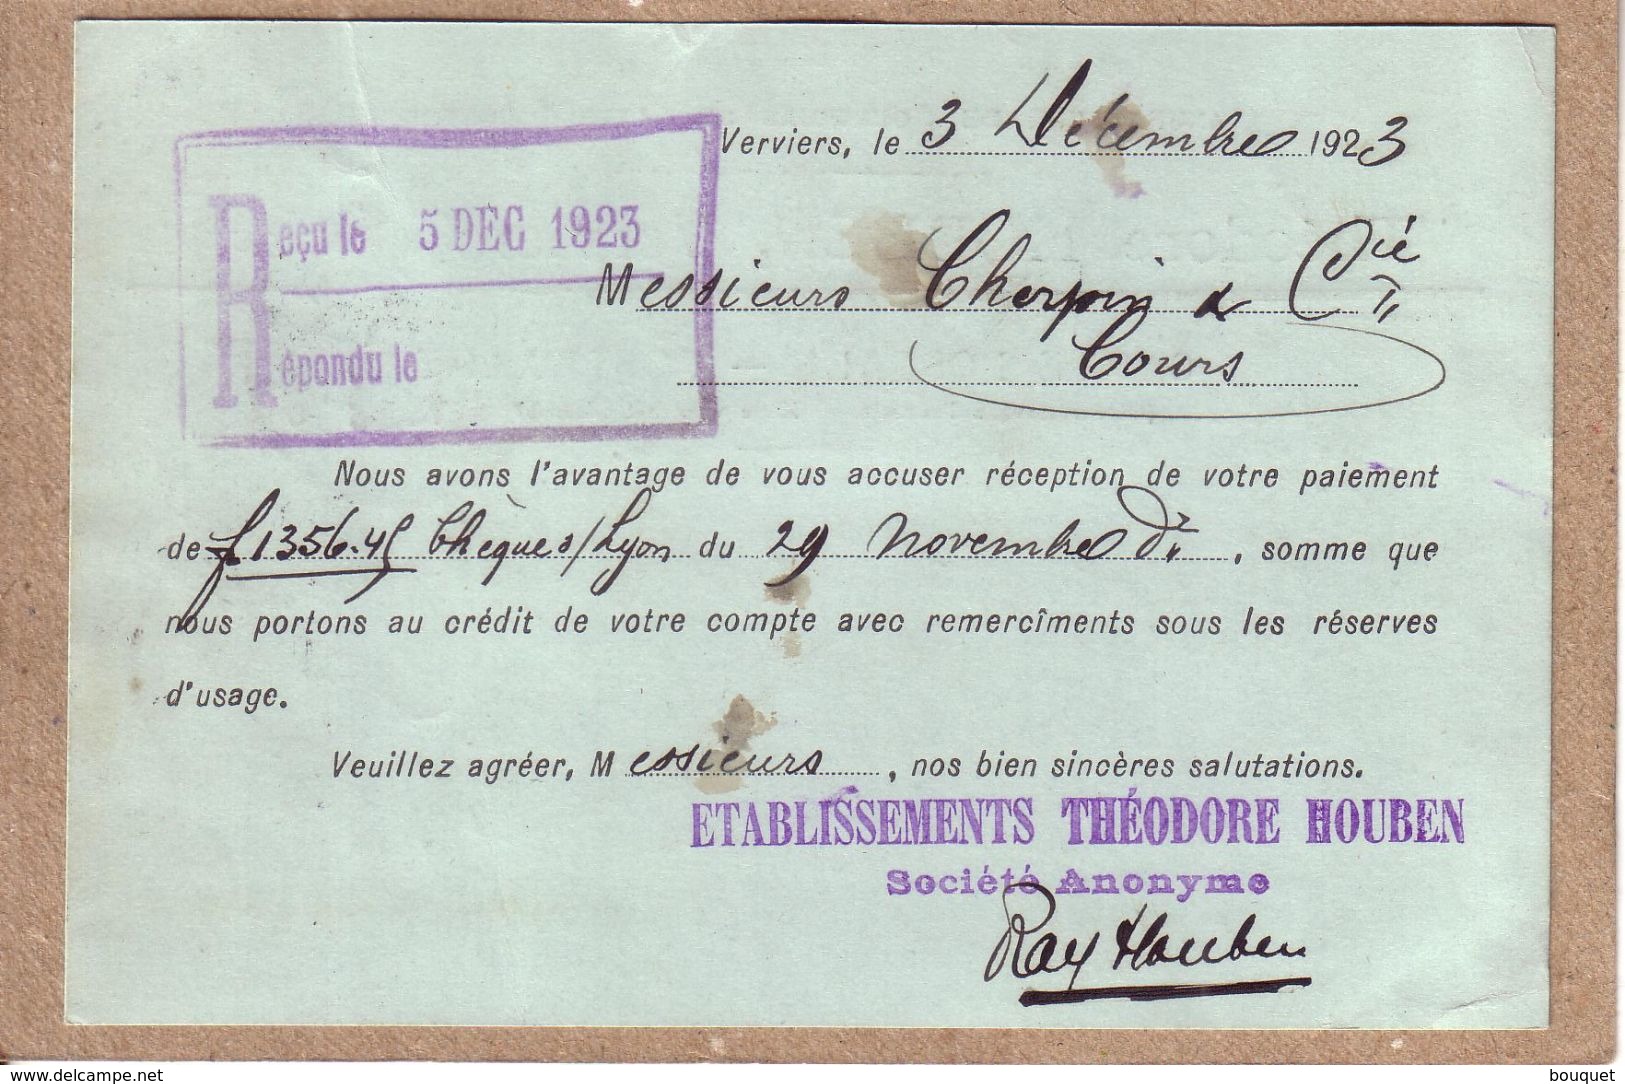 Verviers, le 3 Décembre 1923
Reçu le 5 DEC 1923
Répondu le
Messieurs Cherpin & Cié
Cours
Nous avons l'avantage de vous accuser réception de votre paiement
de f 1356.45 Chèques/Lyon du 29 Novembre dr, somme que
nous portons au crédit de votre compte avec remercîments sous les réserves
d'usage.
Veuillez agréer, Messieurs, nos bien sincères salutations.
ETABLISSEMENTS THÉODORE HOUBEN
Société Anonyme
Ray Houben
www.delcampe.net
bouquet